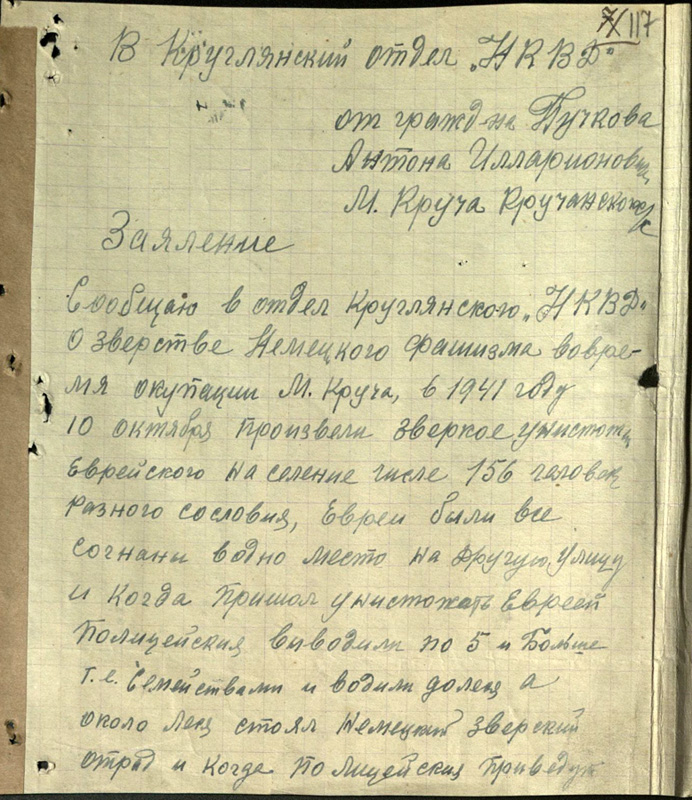 X 117
В Круглянский отдел „НКВД"
от гражд-на Пучкова
Антона Илларионович
М. Круча Кручанского с/с
Заяление
Сообщаю в отдел Круглянского „НКВД"
О зверстве Немецкого фашизма вовре-
мя окупации М. Круча, в 1941 году
10 октября произвели зверкое унистожен
Еврейского на селение числе 156 человек
разного сословия, Евреи были все
согнани водно место на другую улицу
и когда пришол унистожать Евреей
Полицейския выводили по 5 и больше
т.е. Семействами и водили до а
около стоял Немецкий зверский
отряд и когда полицейския приведут